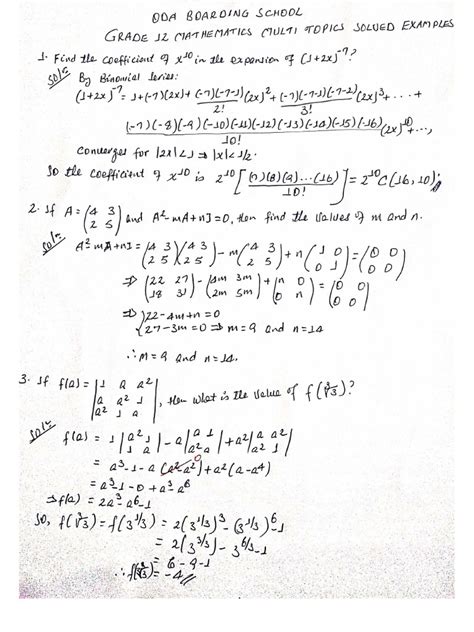 ODA BOARDING SCHOOL
GRADE 12 MATHEMATICS MULTI TOPICS SOLVED EXAMPLES
1. Find the coefficient of x^10 in the expansion of (1+2x)^-7?
Soln By Binomial series:
(1+2x)^-7 = 1+(-7)(2x) + (-7)(-7-1)/2! (2x)^2 + (-7)(-7-1)(-7-2)/3! (2x)^3 + ... +
(-7)(-8)(-9)(-10)(-11)(-12)(-13)(-14)(-15)(-16)/10! (2x)^10 + ...,
Converges for |2x|<1 ⇒ |x|<1/2.
So the coefficient of x^10 is 2^10 [(7)(8)(9)...(16)/10!] = 2^10 C(16,10);
2. If A = (4 3 / 2 5) and A²-mA+nI=0, then find the values of m and n.
Soln A²-mA+nI = (4 3 / 2 5)(4 3 / 2 5) - m(4 3 / 2 5) + n(1 0 / 0 1) = (0 0 / 0 0)
⇒ (22 27 / 18 31) - (4m 3m / 2m 5m) + (n 0 / 0 n) = (0 0 / 0 0)
⇒ {22-4m+n=0
27-3m=0 ⇒ m=9 and n=14
∴ m=9 and n=14.
3. If f(a) = |1 a a² / a a² 1 / a² 1 a|, then what is the value of f(∛3)?
Soln f(a) = 1|a² 1 / 1 a| - a|a 1 / a² a| + a²|a a² / a² 1|
= a³-1-a(a²-a²)+a²(a-a⁴) 0
= a³-1-0+a³-a⁶
⇒ f(a) = 2a³-a⁶-1
So, f(∛3) = f(3^1/3) = 2(3^1/3)^3 - (3^1/3)^6 - 1
= 2(3^3/3) - 3^6/3 - 1
= 6-9-1
∴ f(∛3) = -4//